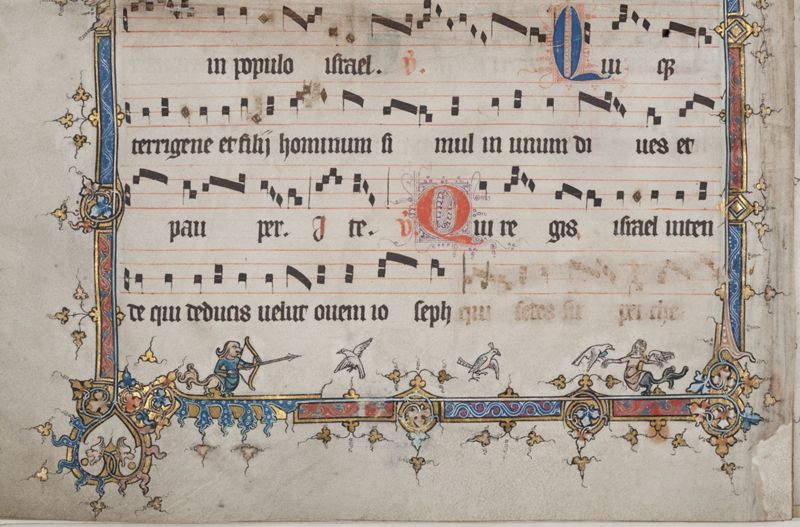 in populo israel. V. Qui q̄
terrigene et filij hominum si mul in unum di ues et
pau per. I te. V. Qui re gis israel inten
de qui deducis uelut ouem io seph qui sedes su per che